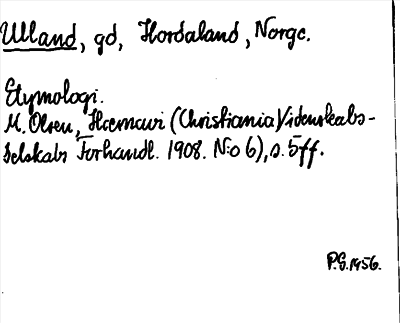 Ulland, gd, Hordaland, Norge.
Etymologi.
M. Olsen, Hærnavi (Christiania Videnskabs-
Selskabs Forhandl. 1908. N:o 6), s. 5ff.
P.G. 1956.